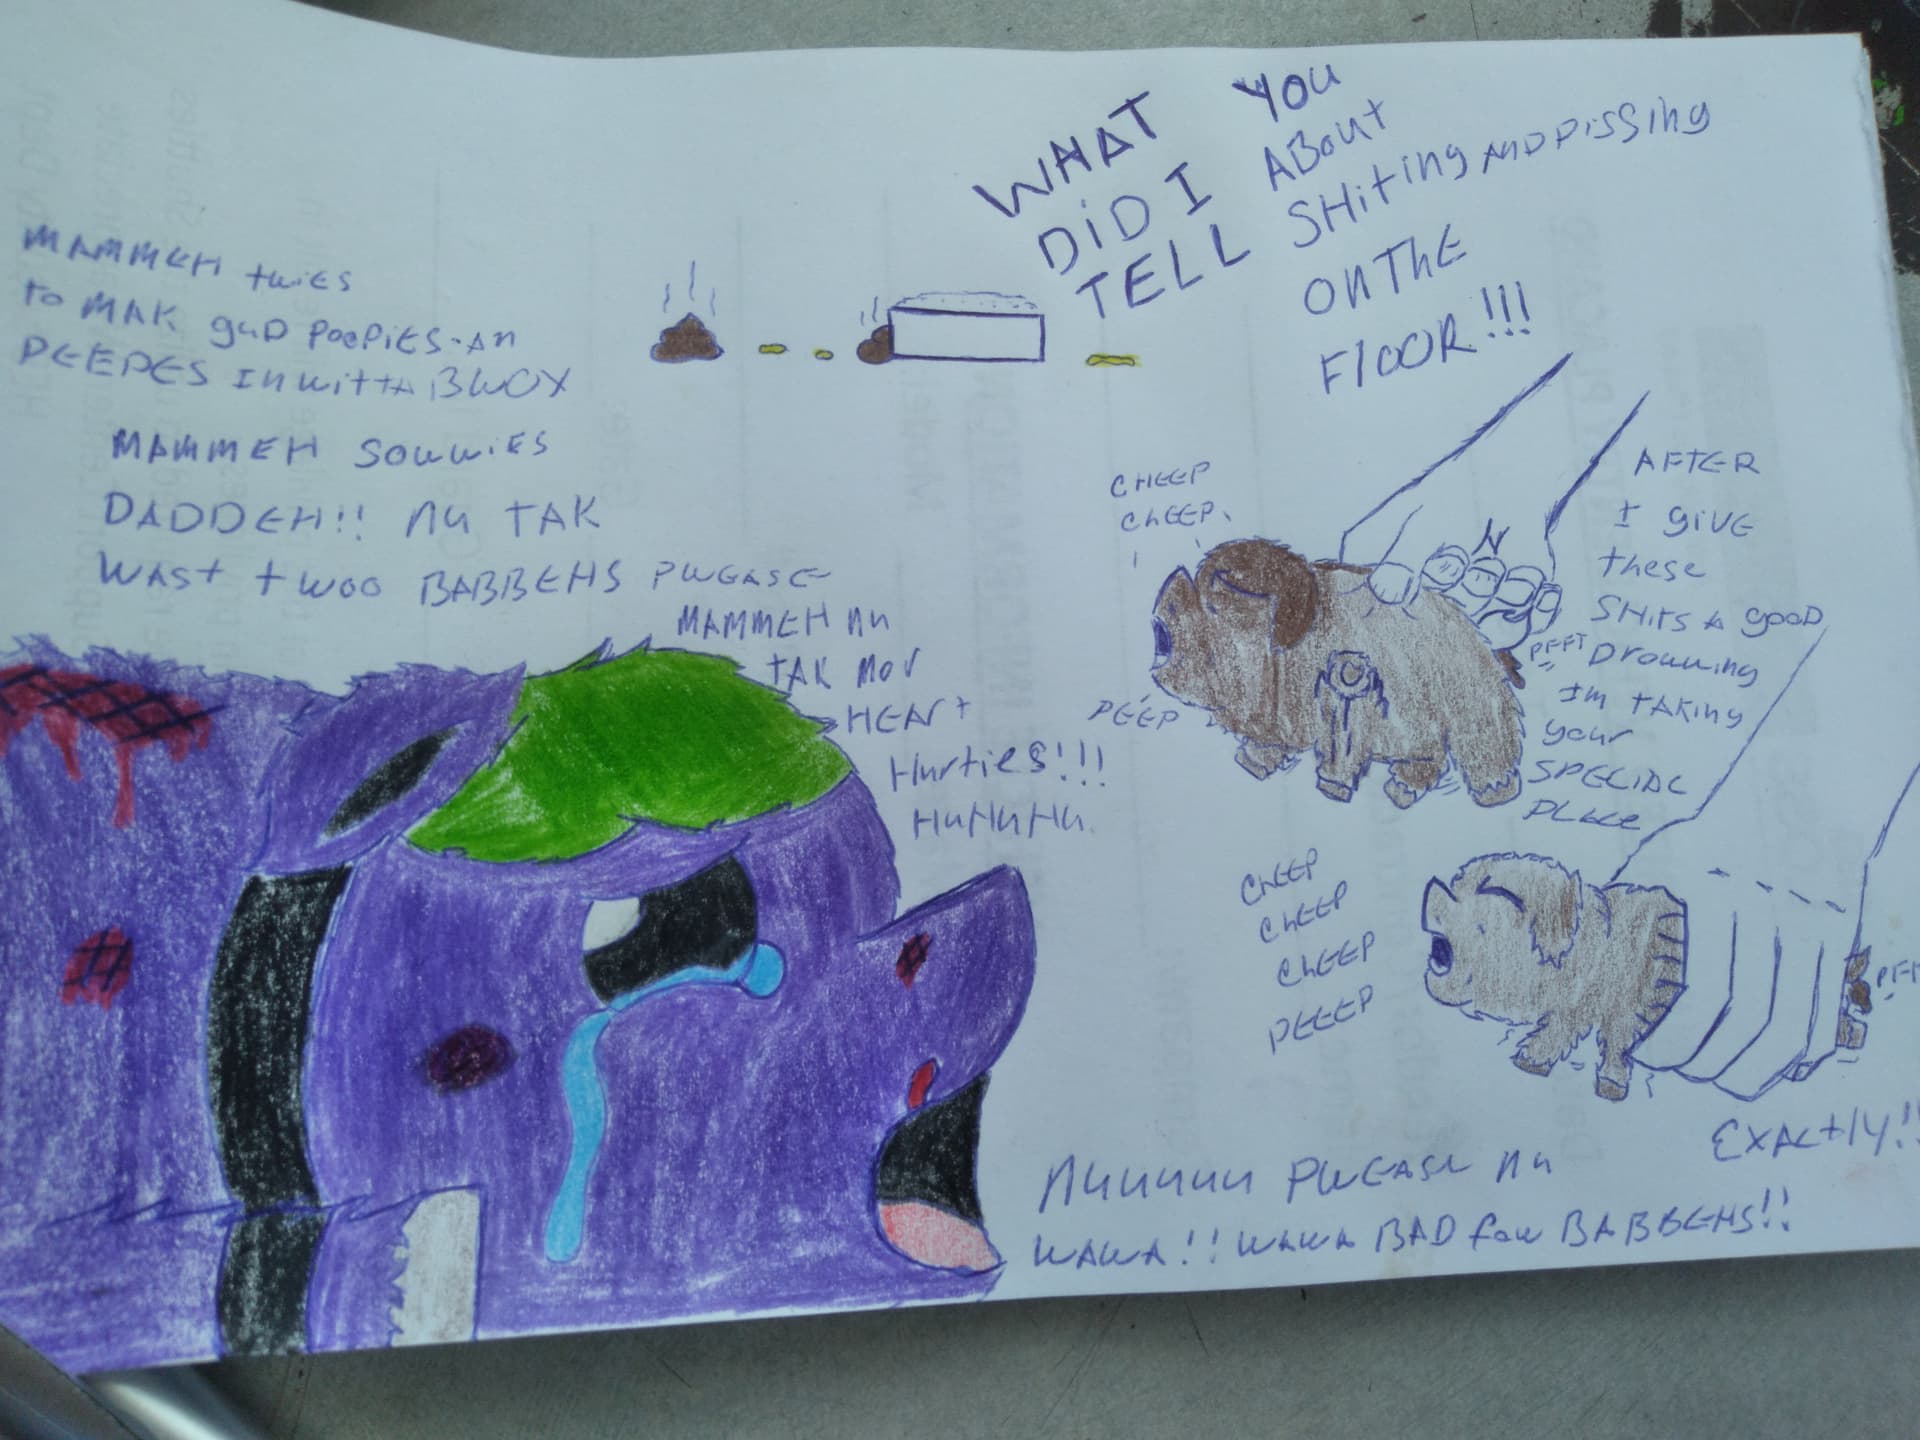 MAMMEH twiES
to MAK guD PoopiES-An
PEEPES InwittA BWOX
MAMMEH SOWWiES
DADDEH!! nu TAK
WASt twoo BABBEHS PWEASE
MAMMEH nu
tAK MOV
HEArt
Hurties!!!
HuHuHu.
WHAT
DiD I
TELL
YOu
ABOut
SHiting AND PiSSing
On ThE
FlOOR!!!
CHEEP
ChEEP.
PEEP
PEPT
AFTER
I giVE
these
SHits A gooD
Drowning
Im tAKing
your
SPECIAL
PLAce
ChEEP
ChEEP
ChEEP
PEEEP
EXActly!!
Nuuuuuu PWEASE nu
WAWA!! WAWA BAD fow BABBEHS!!